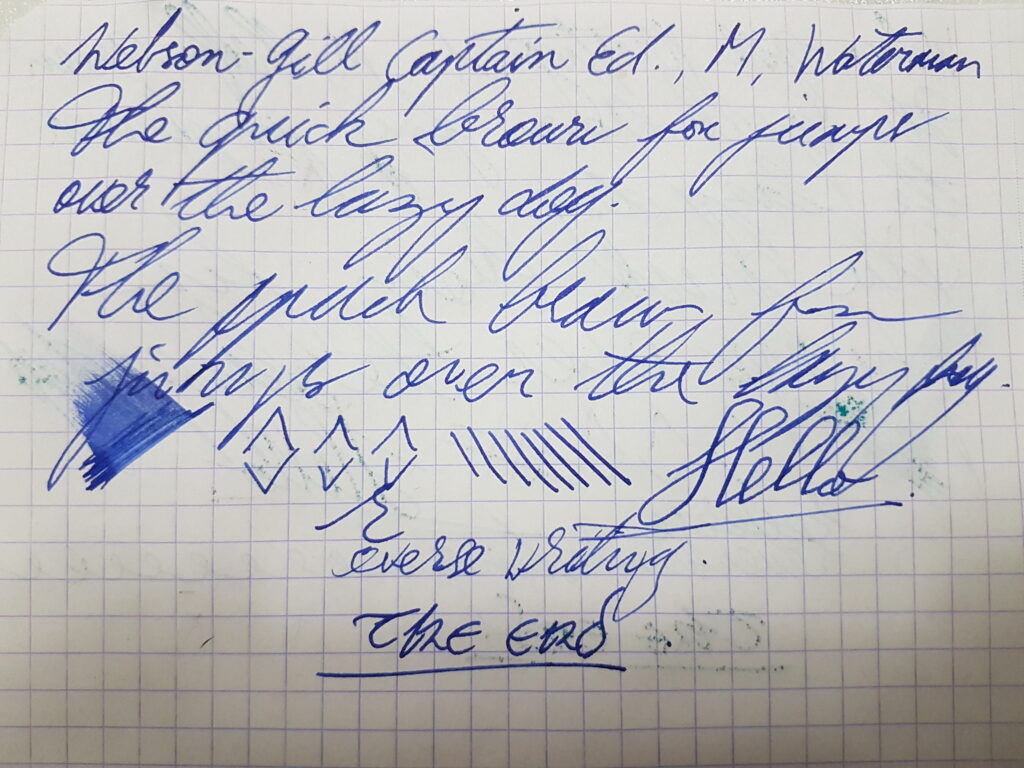 Webson-Gill Captain Ed., M, Waterman
The quick brown fox jumps
over the lazy dog.
The quick brown fox
jumps over the lazy dog.
Hello
Reverse writing.
THE END